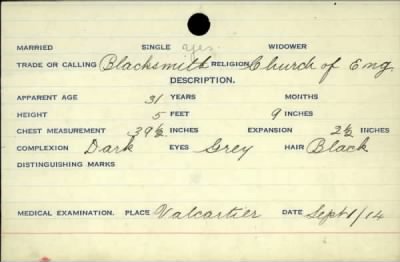 MARRIED SINGLE yes. WIDOWER
TRADE OR CALLING Blacksmith RELIGION Church of Eng
DESCRIPTION.
APPARENT AGE 31 YEARS MONTHS
HEIGHT 5 FEET 9 INCHES
CHEST MEASUREMENT 39½ INCHES EXPANSION 2½ INCHES
COMPLEXION Dark EYES Grey HAIR Black
DISTINGUISHING MARKS
MEDICAL EXAMINATION. PLACE Valcartier DATE Sept 1/14